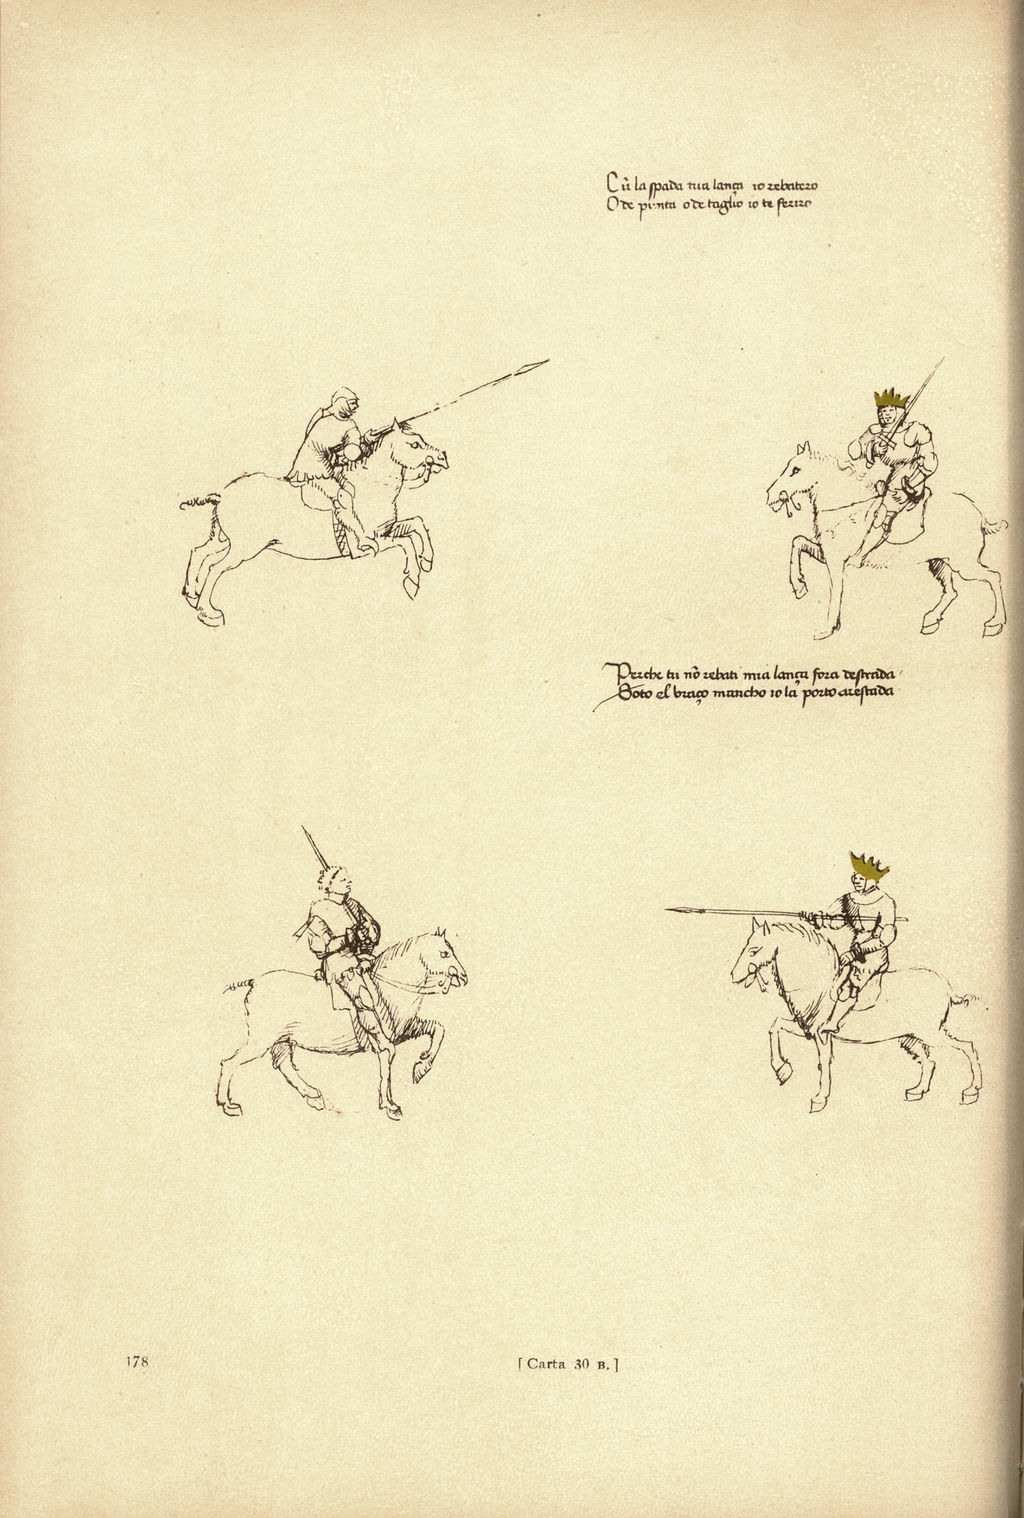 Cũ la spada tua lança io rebatero
O de punta o de taglio io te feriro
Perche tu nõ rebati mia lança fora destrada
Soto el braço mancho io la porto arestada
178
[Carta 30 B.]